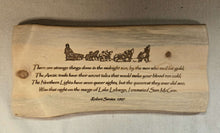 There are strange things done in the midnight sun, by the men who moil for gold;
The Arctic trails have their secret tales that would make your blood run cold;
The Northern Lights have seen queer sights, but the queerest they ever did see,
Was that night on the marge of Lake Lebarge, I cremated Sam McGee.
Robert Service, 1907